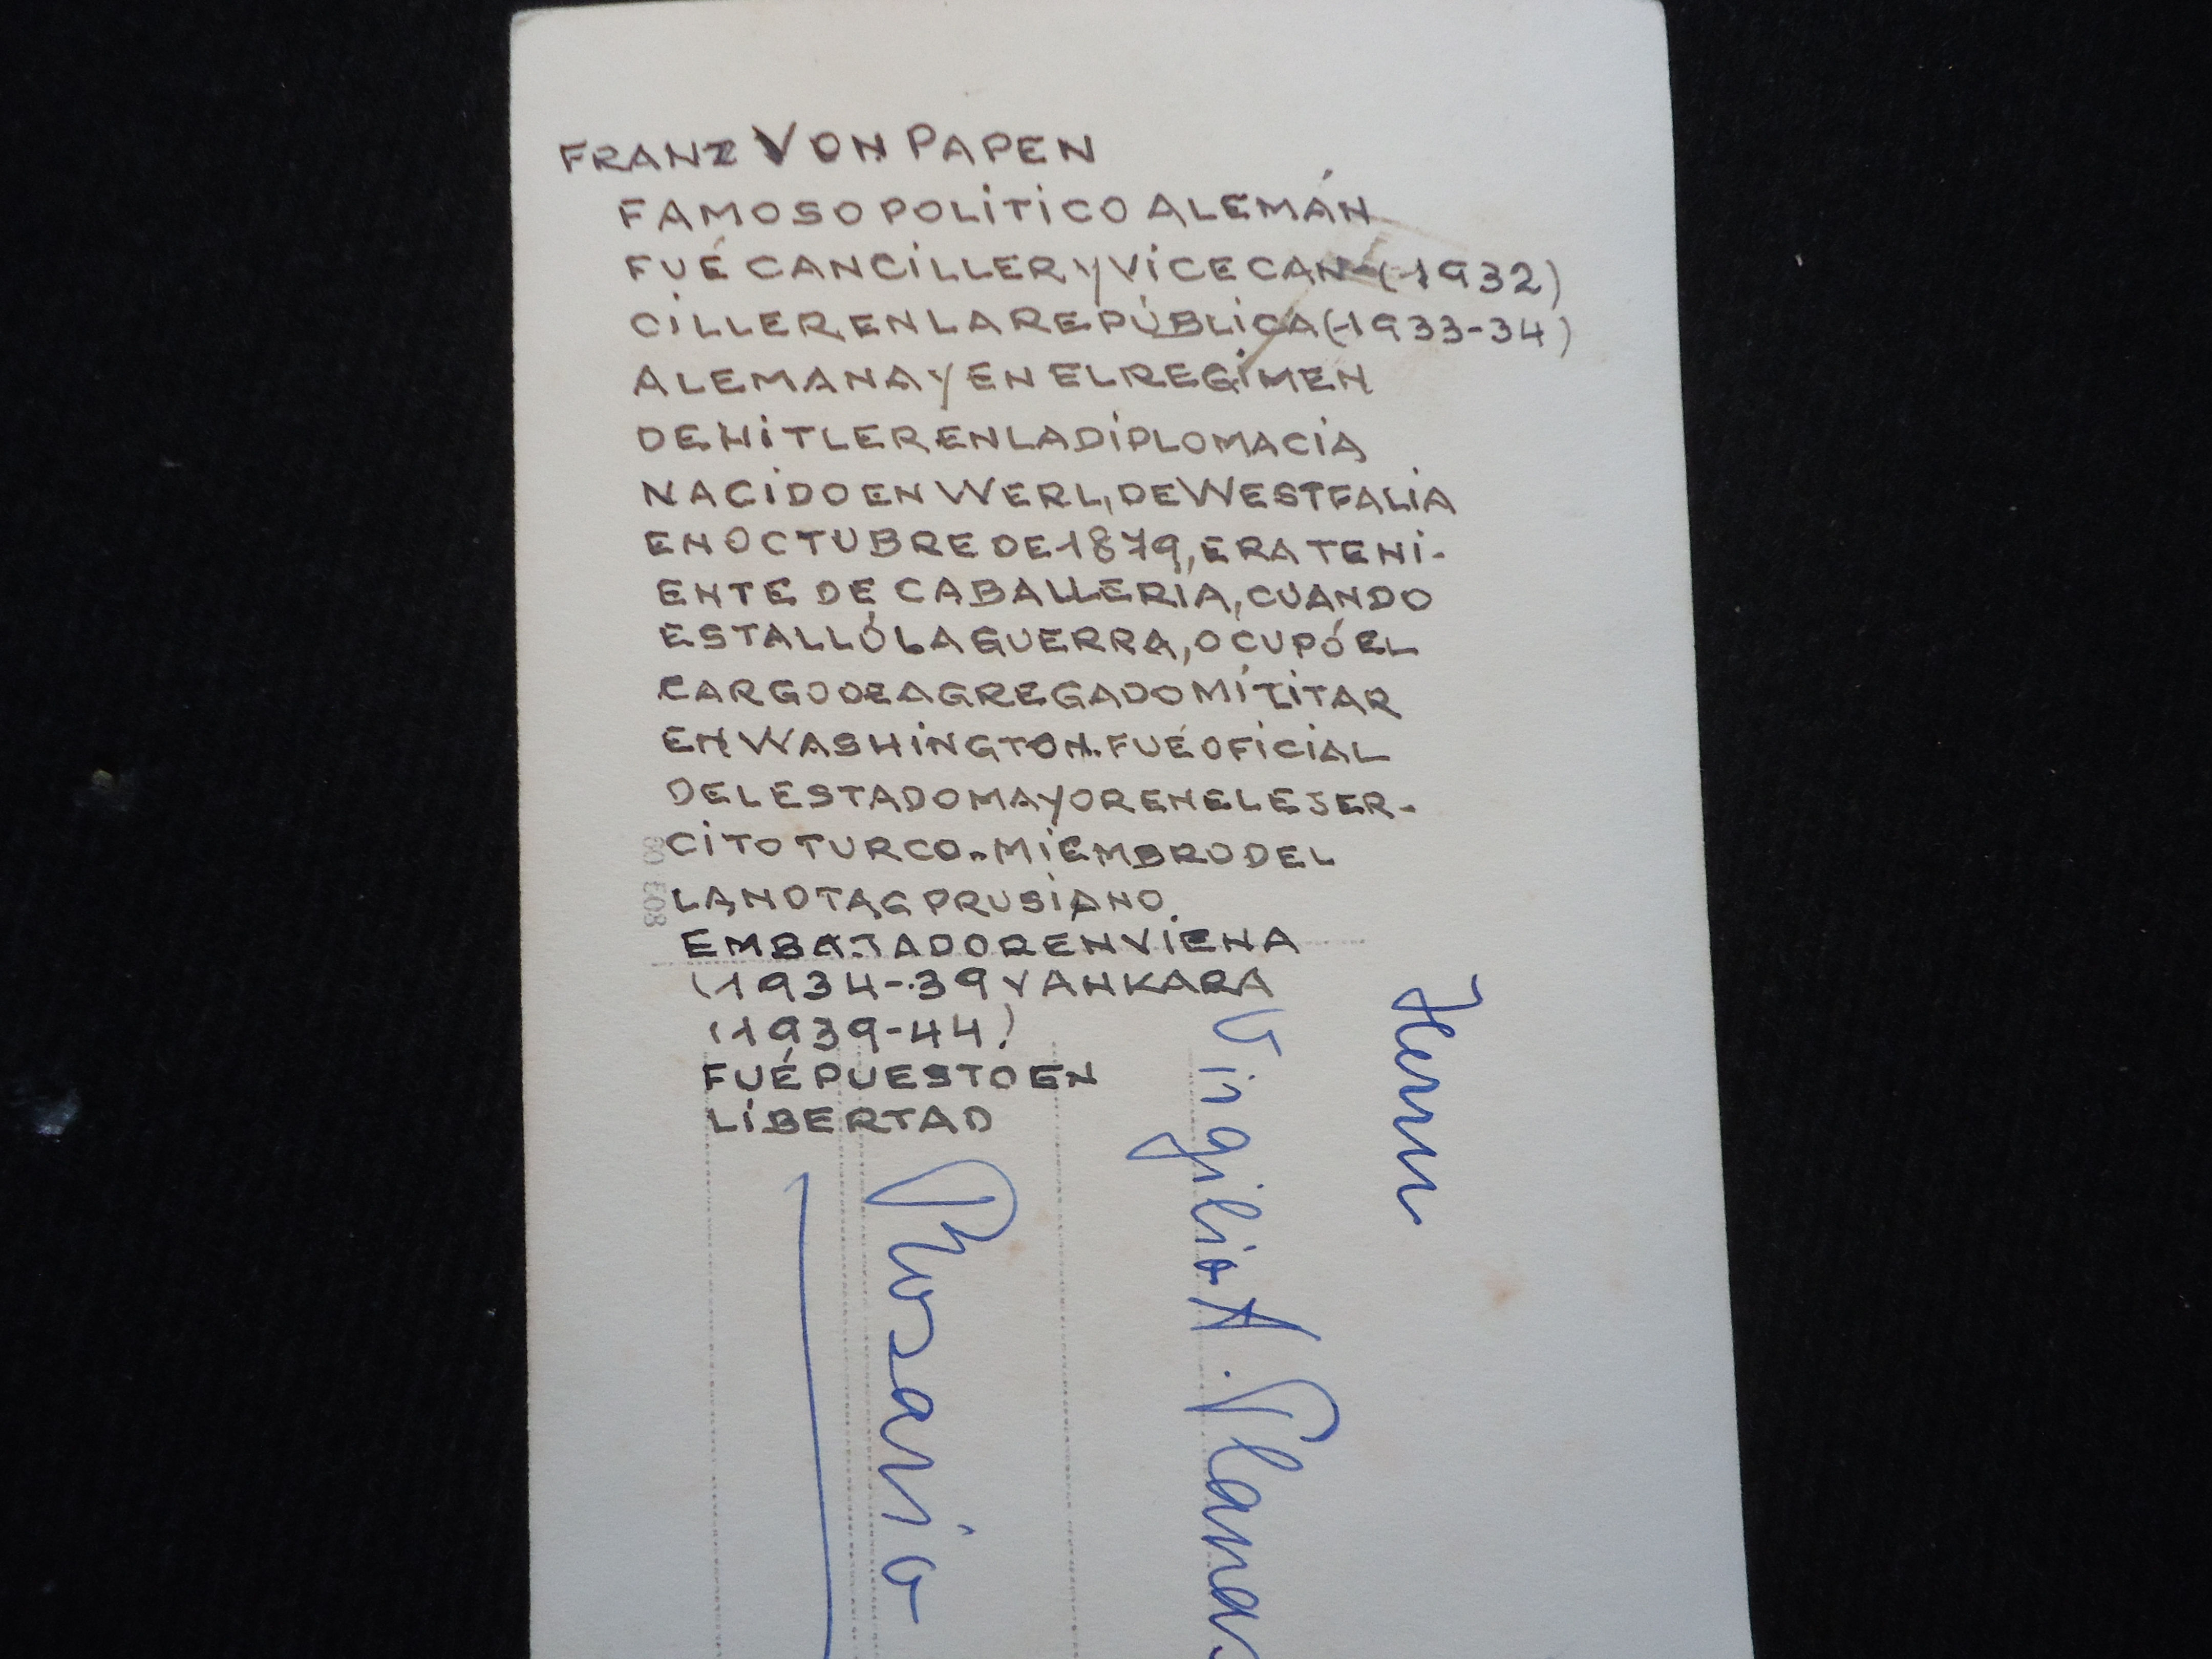 FRANZ VON PAPEN
FAMOSO POLITICO ALEMÁN
FUÉ CANCILLER Y VICE CAN- (1932)
CILLER EN LA REPÚBLICA (1933-34)
ALEMANA Y EN EL REGIMEN
DE HITLER EN LA DIPLOMACIA
NACIDO EN WERL, DE WESTFALIA
EN OCTUBRE DE 1879, ERA TENI-
ENTE DE CABALLERIA, CUANDO
ESTALLÓ LA GUERRA, OCUPÓ EL
CARGO DE AGREGADO MILITAR
EN WASHINGTON. FUÉ OFICIAL
DEL ESTADO MAYOR EN EL EJER-
CITO TURCO. MIEMBRO DEL
LANDTAG PRUSIANO.
EMBAJADOR EN VIENA
(1934-39 Y ANKARA
(1939-44)
FUÉ PUESTO EN
LIBERTAD
Herrn
Virgilio A. Planas
Rosario